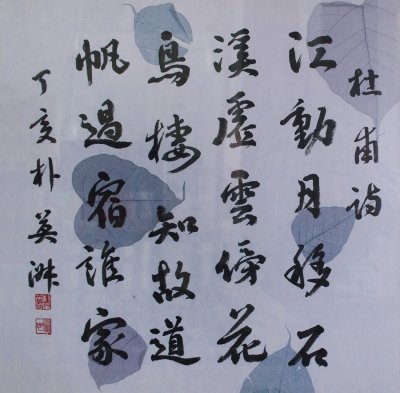 杜甫诗
江動月移石
溪虛雲傍花
鳥棲知故道
帆過宿誰家
丁亥朴英淋